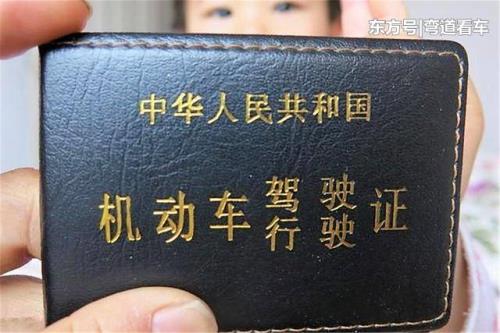 东方号|弯道看车
中华人民共和国
机动车驾驶证
行驶